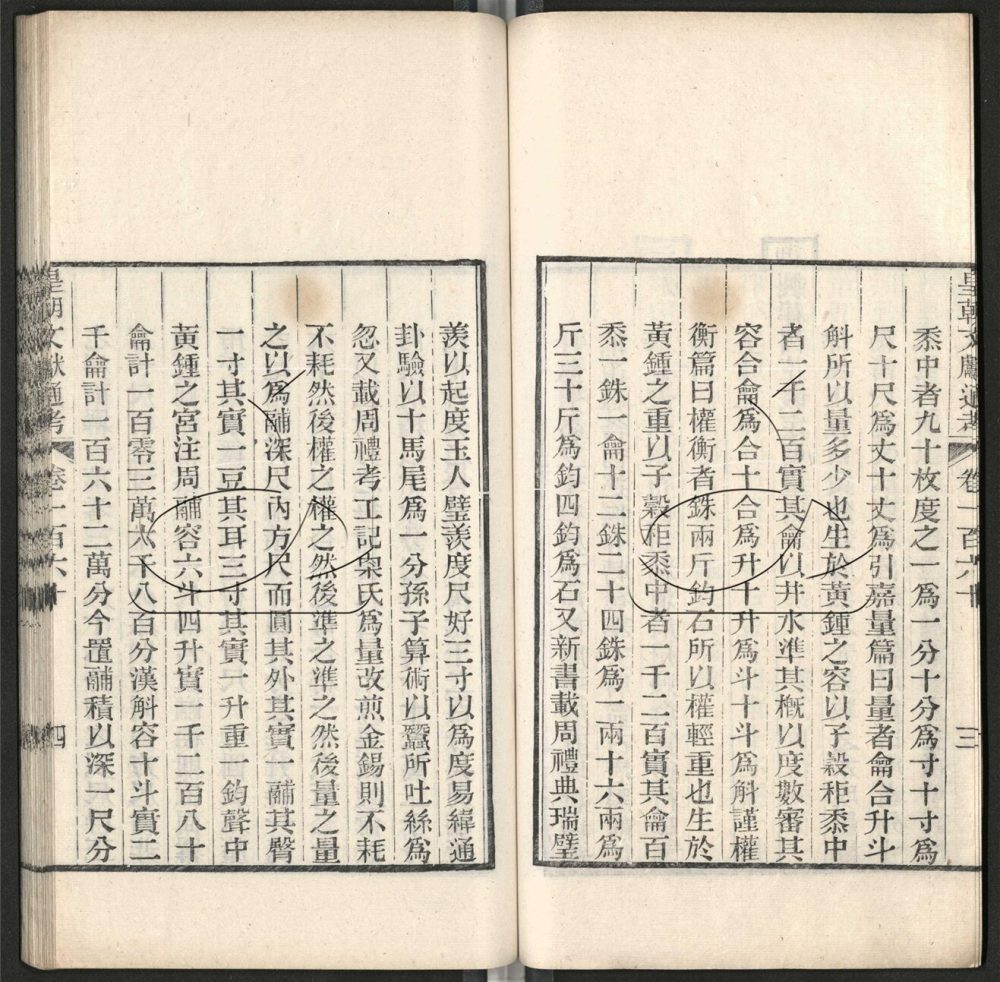 皇朝文獻通考　卷一百六十　三
黍中者九十枚度之一為一分十分為寸十寸為
尺十尺為丈十丈為引嘉量篇曰量者龠合升斗
斛所以量多少也生於黃鍾之容以子穀秬黍中
者一千二百實其龠以井水準其概以度數審其
容合龠為合十合為升十升為斗十斗為斛謹權
衡篇曰權衡者銖兩斤鈞石所以權輕重也生於
黃鍾之重以子穀秬黍中者一千二百實其龠百
黍一銖一龠十二銖二十四銖為一兩十六兩為
斤三十斤為鈞四鈞為石又新書載周禮典瑞璧
羨以起度玉人璧羨度尺好三寸以為度易緯通
卦驗以十馬尾為一分孫子算術以蠶所吐絲為
忽又載周禮考工記㮚氏為量改煎金錫則不耗
不耗然後權之權之然後準之準之然後量之量
之以為鬴深尺內方尺而圓其外其實一鬴其臀
一寸其實一豆其耳三寸其實一升重一鈞聲中
黃鍾之宮注周鬴容六斗四升實一千二百八十
龠計一百零三萬六千八百分漢斛容十斗實二
千龠計一百六十二萬分今置鬴積以深一尺分
皇朝文獻通考　卷一百六十　四